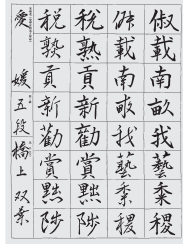 俶載南畝我藝黍稷
俶載南畝我藝黍稷
税熟貢新勸賞黜陟
税熟貢新勸賞黜陟
愛媛 五段 橋上双葉